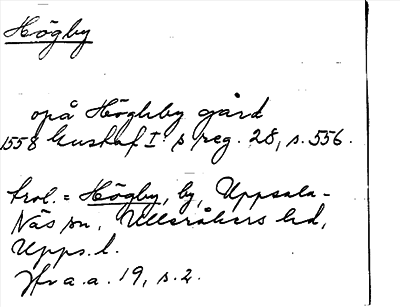 Högby
opå Höghby gård
1558 Gustaf I:s reg. 28, s. 556.
trol. = Högby, by, Uppsala-
Näs sn, Ulleråkers hd,
Upps. l.
Jfr a.a. 19, s. 2.